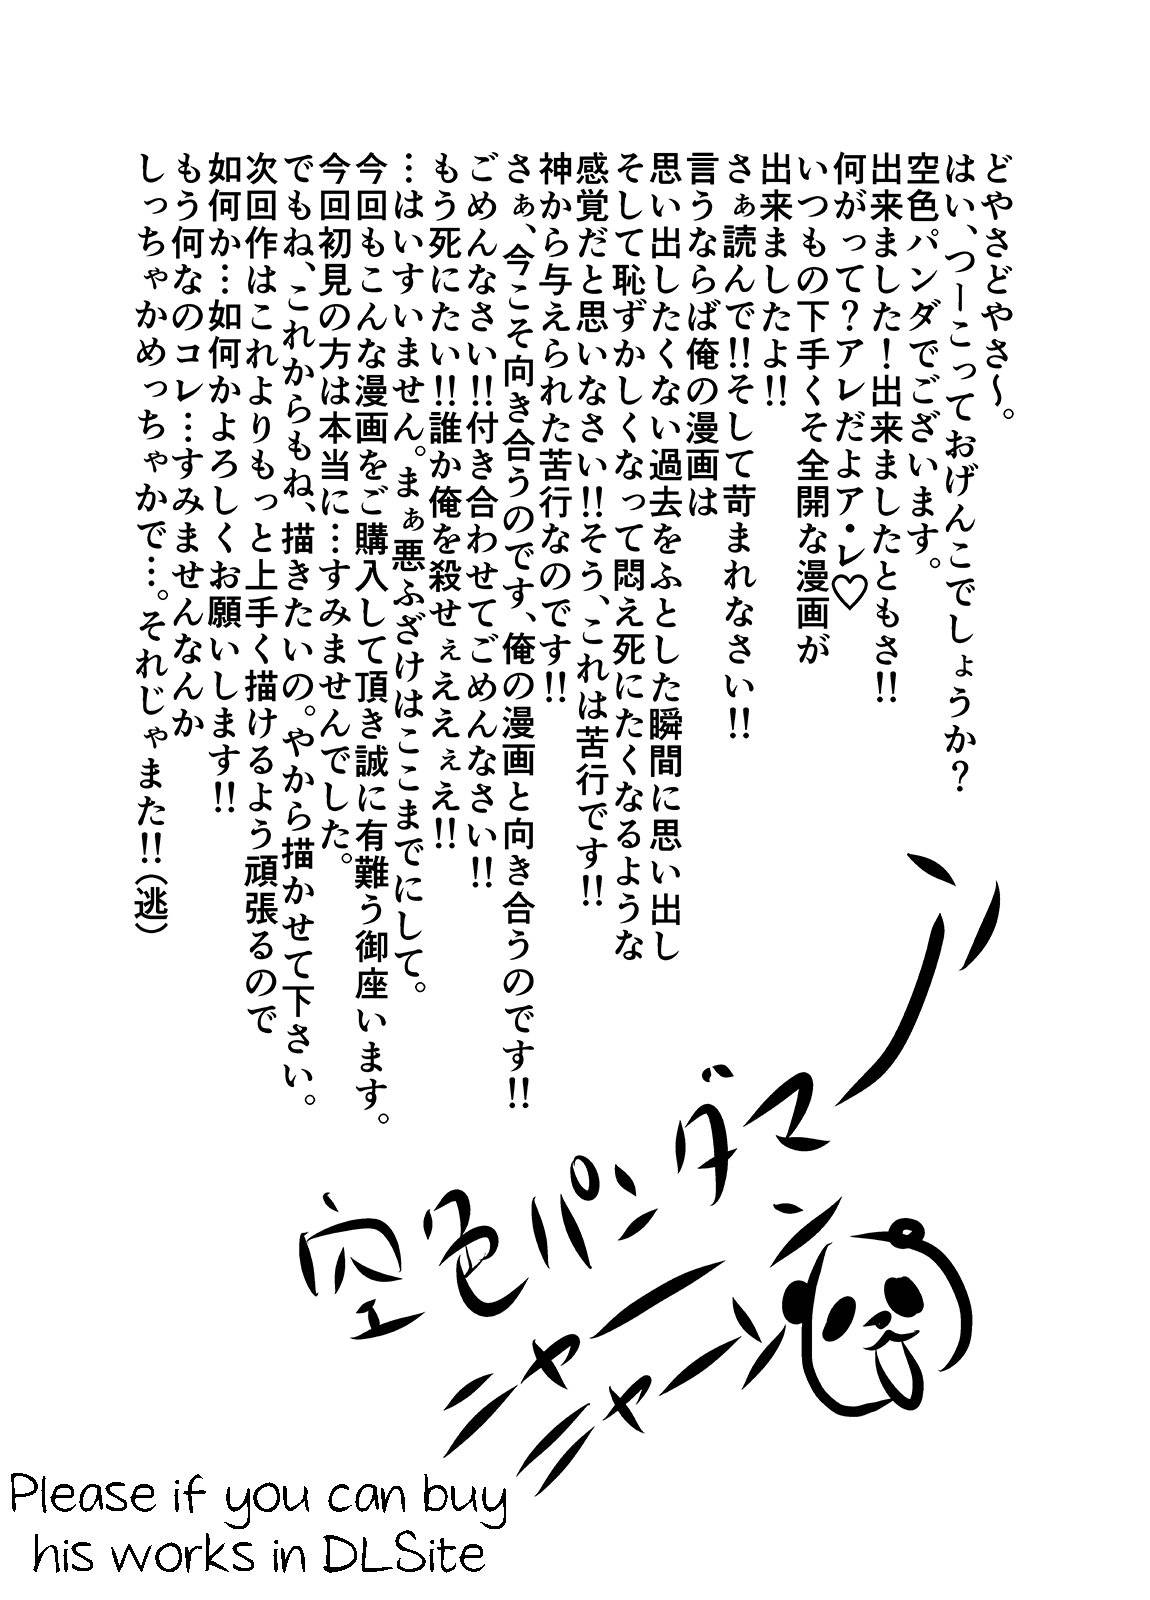 どやさどやさ～。
はい、つーこっておげんこでしょうか？
空色パンダでございます。
出来ました！出来ましたともさ!!
何がって？アレだよア・レ♡
いつもの下手くそ全開な漫画が
出来ましたよ!!
さぁ読んで!!そして苛まれなさい!!
言うならば俺の漫画は
思い出したくない過去をふとした瞬間に思い出し
そして恥ずかしくなって悶え死にたくなるような
感覚だと思いなさい!!そう、これは苦行です!!
神から与えられた苦行なのです!!
さぁ、今こそ向き合うのです、俺の漫画と向き合うのです!!
ごめんなさい!!付き合わせてごめんなさい!!
もう死にたい!!誰か俺を殺せぇええぇえ!!
…はいすいません。まぁ悪ふざけはここまでにして。
今回もこんな漫画をご購入して頂き誠に有難う御座います。
今回初見の方は本当に…すみませんでした。
でもね、これからもね、描きたいの。やから描かせて下さい。
次回作はこれよりもっと上手く描けるよう頑張るので
如何か…如何かよろしくお願いします!!
もう何なのコレ…すみませんなんか
しっちゃかめっちゃかで…。それじゃまた!!(逃)
空色パンダマン
ニャーン
ニャーン
Please if you can buy
his works in DLSite